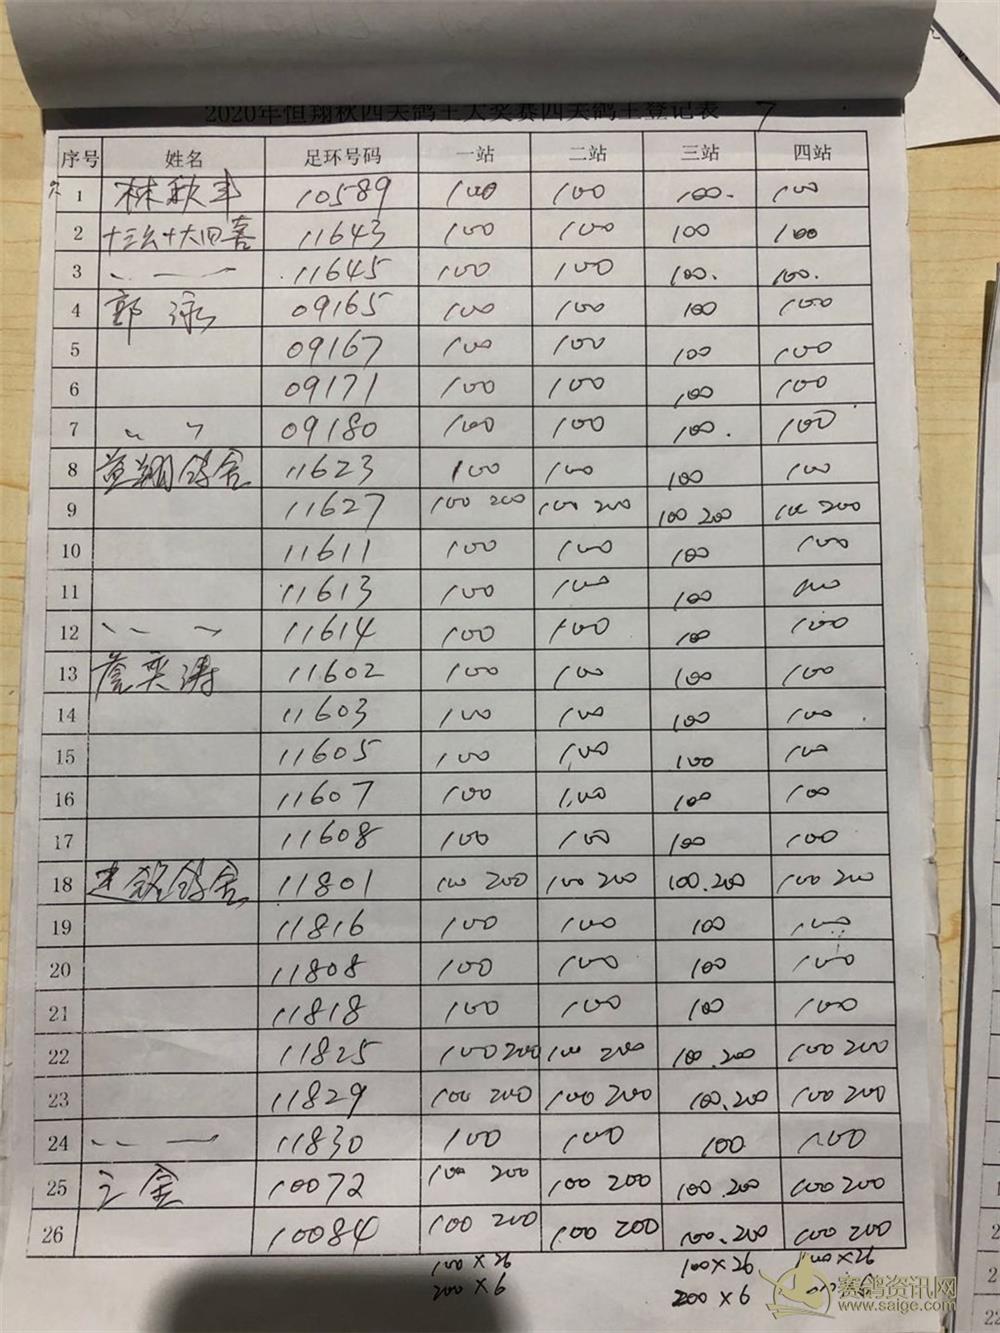 2020年恒翔秋四关鸽王大奖赛四关鸽王登记表 7
序号 姓名 足环号码 一站 二站 三站 四站
1 林秋丰 10589 100 100 100. 100
2 十三幺十大四喜 11643 100 100 100 100
3 〃 — 11645 100 100 100. 100.
4 郭泳 09165 100 100 100 100
5 09167 100 100 100 100
6 09171 100 100 100 100
7 〃 〃 09180 100 100 100. 100
8 翔鸽舍 11623 100 100 100 100
9 11627 100 200 100 200 100 200 100 200
10 11611 100 100 100 100
11 11613 100 100 100 100
12 〃 〃 11614 100 100 100 100
13 詹奕涛 11602 100 100 100 100
14 11603 100 100 100 100
15 11605 100 100 100 100
16 11607 100 100 100 100
17 11608 100 100 100 100
18 鸽舍 11801 100 200 100 200 100.200 100 200
19 11816 100 100 100 100
20 11808 100 100 100 100
21 11818 100 100 100 100
22 11825 100 200 100 200 100.200 100 200
23 11829 100 200 100 200 100.200 100 200
24 〃 — 11830 100 100 100 100
25 10072 100 200 100 200 100.200 100 200
26 10084 100 200 100 200 100.200 100 200
100×26 100×26 100×26
200×6 200×6
赛鸽资讯网
www.saige.com